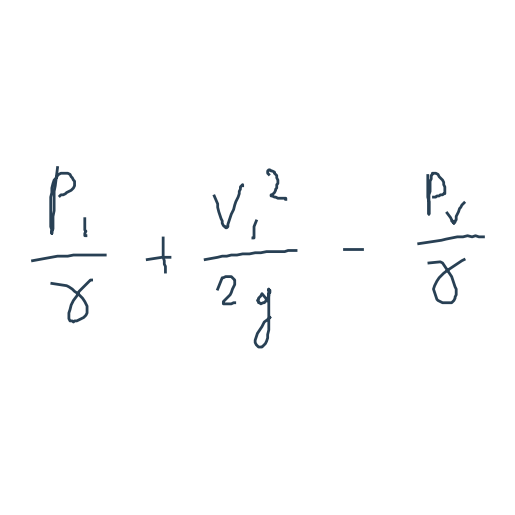 \frac{P_1}{\gamma} + \frac{V_1^2}{2g} - \frac{P_v}{\gamma}